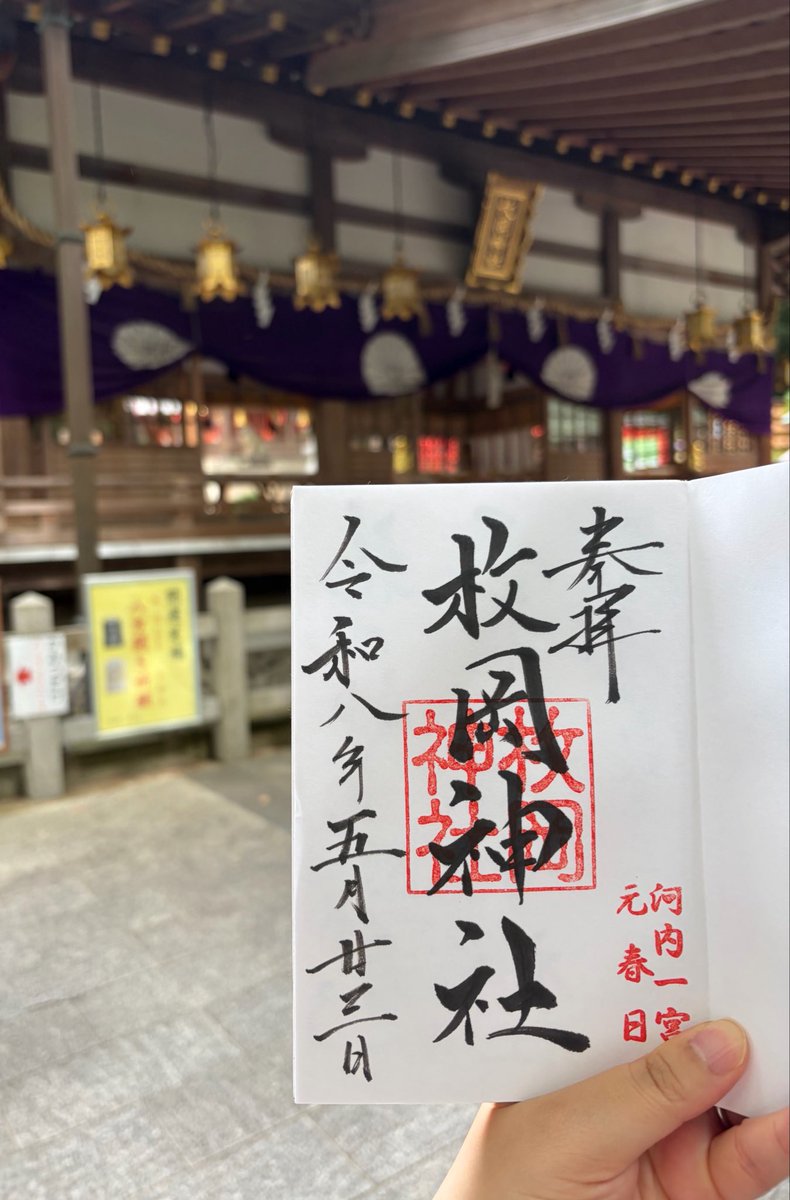 奉拝
枚岡神社
枚岡神社
河内一宮
元春日
令和八年五月廿三日